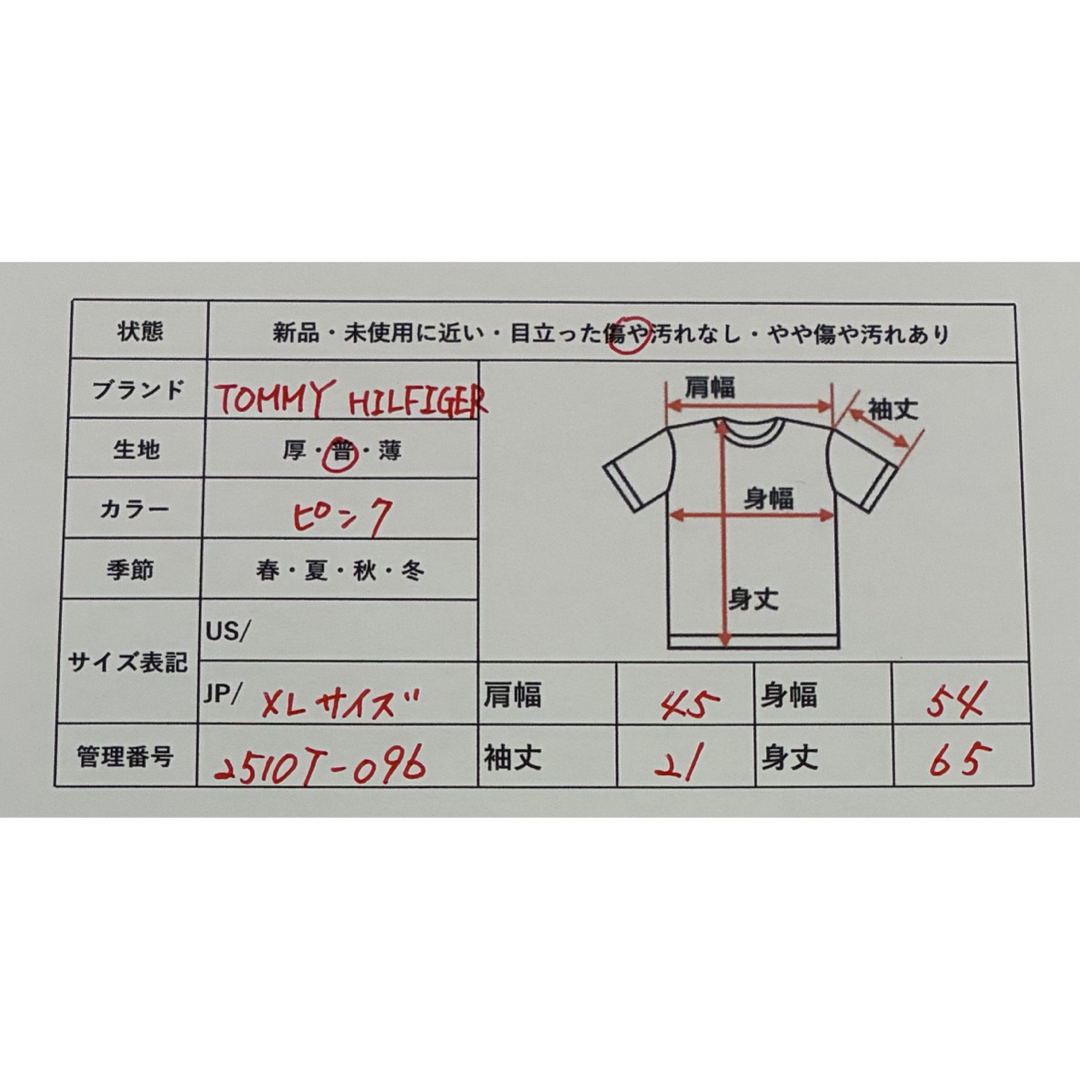 状態 新品・未使用に近い・目立った傷や汚れなし・やや傷や汚れあり
ブランド TOMMY HILFIGER
生地 厚・普・薄
カラー ピンク
季節 春・夏・秋・冬
サイズ表記 US/
JP/ XLサイズ
管理番号 2510T-096
肩幅
袖丈
身幅
身丈
肩幅 45 身幅 54
袖丈 21 身丈 65